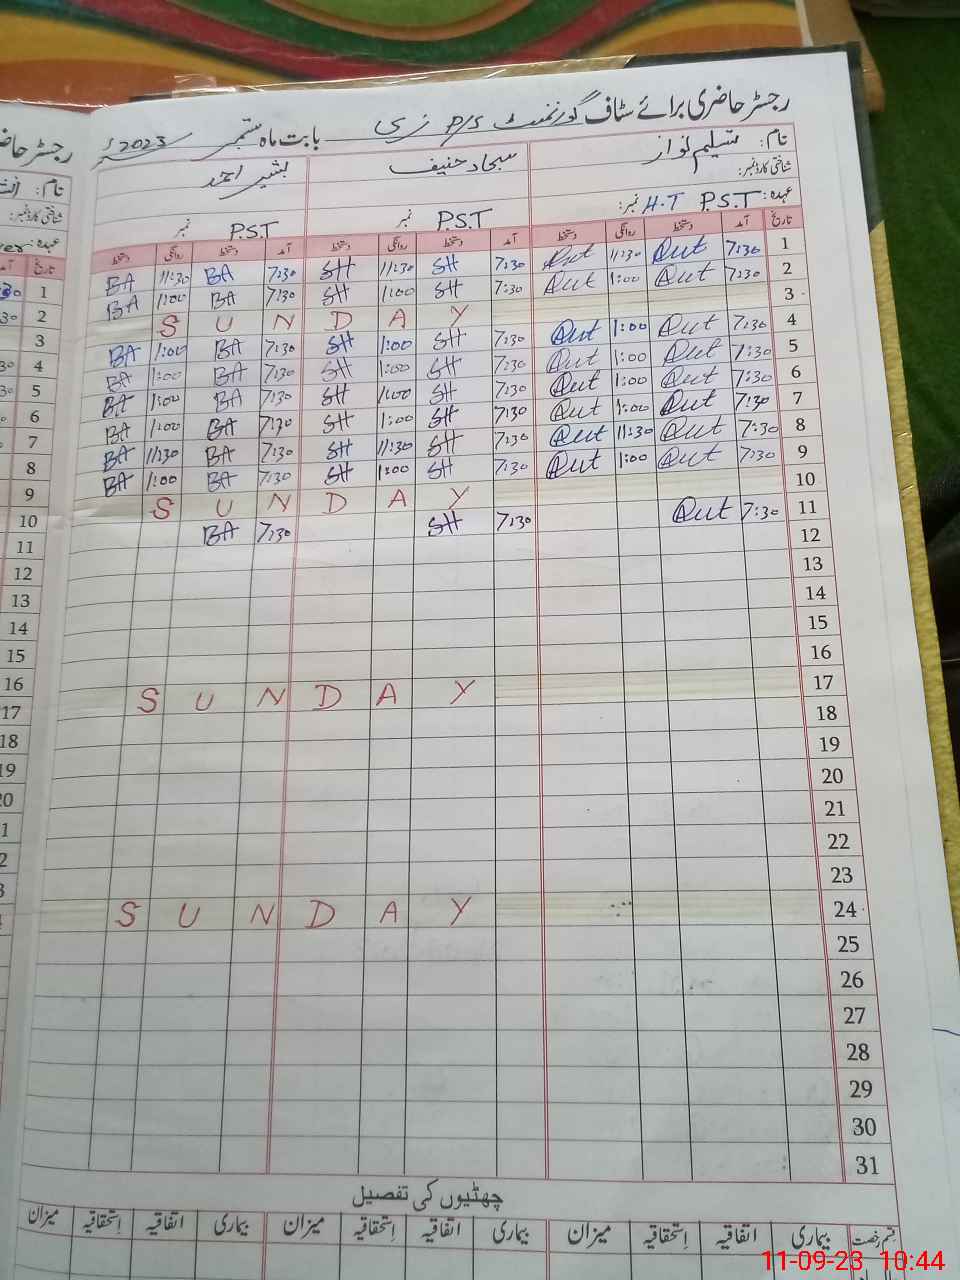 رجسٹر حاضری برائے سٹاف گورنمنٹ P/S بابت ماہ ستمبر 2023ء
نام: تسلیم نواز سجاد حنیف بشیر احمد
شناختی کارڈ نمبر:
عہدہ: P.S.T H.T نمبر: P.S.T نمبر P.S.T نمبر
تاریخ آمد دستخط روانگی دستخط آمد دستخط روانگی دستخط آمد دستخط روانگی دستخط
1 7:30 Out 11:30 Out 7:30 SH 11:30 SH 7:30 BA 11:30 BA
2 7:30 Out 1:00 Out 7:30 SH 1:00 SH 7:30 BA 1:00 BA
3 S U N D A Y
4 7:30 Out 1:00 Out 7:30 SH 1:00 SH 7:30 BA 1:00 BA
5 7:30 Out 1:00 Out 7:30 SH 1:00 SH 7:30 BA 1:00 BA
6 7:30 Out 1:00 Out 7:30 SH 1:00 SH 7:30 BA 1:00 BA
7 7:30 Out 1:00 Out 7:30 SH 1:00 SH 7:30 BA 1:00 BA
8 7:30 Out 11:30 Out 7:30 SH 11:30 SH 7:30 BA 11:30 BA
9 7:30 Out 1:00 Out 7:30 SH 1:00 SH 7:30 BA 1:00 BA
10 S U N D A Y
11 7:30 Out 7:30 SH 7:30 BA
12
13
14
15
16
17 S U N D A Y
18
19
20
21
22
23
24 S U N D A Y
25
26
27
28
29
30
31
چھٹیوں کی تفصیل
قسم رخصت بیماری اتفاقیہ استحقاقیہ میزان بیماری اتفاقیہ استحقاقیہ میزان بیماری اتفاقیہ استحقاقیہ میزان
رجسٹر
نام:
شناختی کارڈ نمبر:
عہدہ:
تاریخ
1
2
3
4
5
6
7
8
9
10
11
12
13
14
15
16
17
18
19
11-09-23 10:44